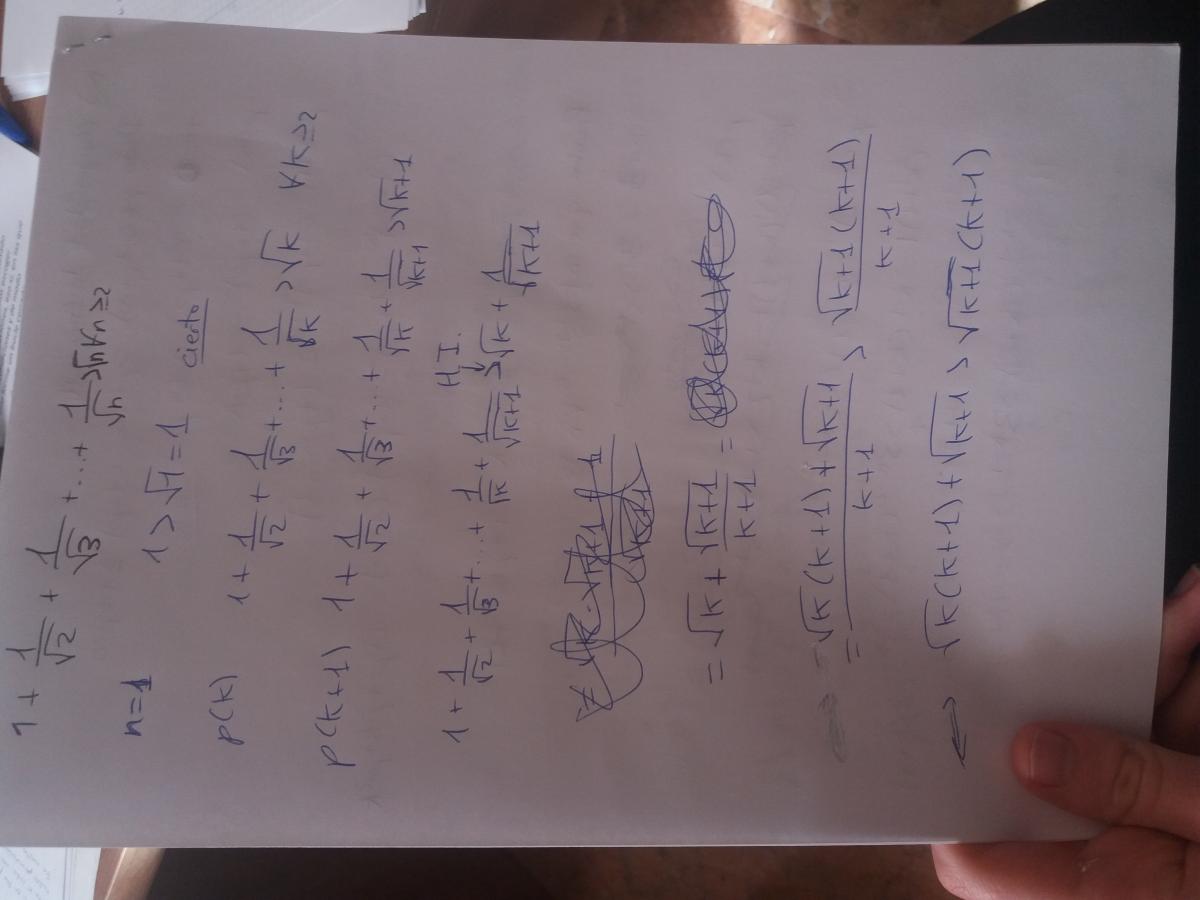 1 + 1/√2 + 1/√3 + ... + 1/√n > √n ∀n≥2
n=1 1 > √1 = 1 cierto
p(k) 1 + 1/√2 + 1/√3 + ... + 1/√k > √k ∀k≥2
p(k+1) 1 + 1/√2 + 1/√3 + ... + 1/√k + 1/√k+1 > √k+1
H.I.
1 + 1/√2 + 1/√3 + ... + 1/√k + 1/√k+1 > √k + 1/√k+1
= √k + √k+1/k+1 =
= √k(k+1) + √k+1/k+1 > √k+1(k+1)/k+1
⟺ √k(k+1) + √k+1 > √k+1(k+1)